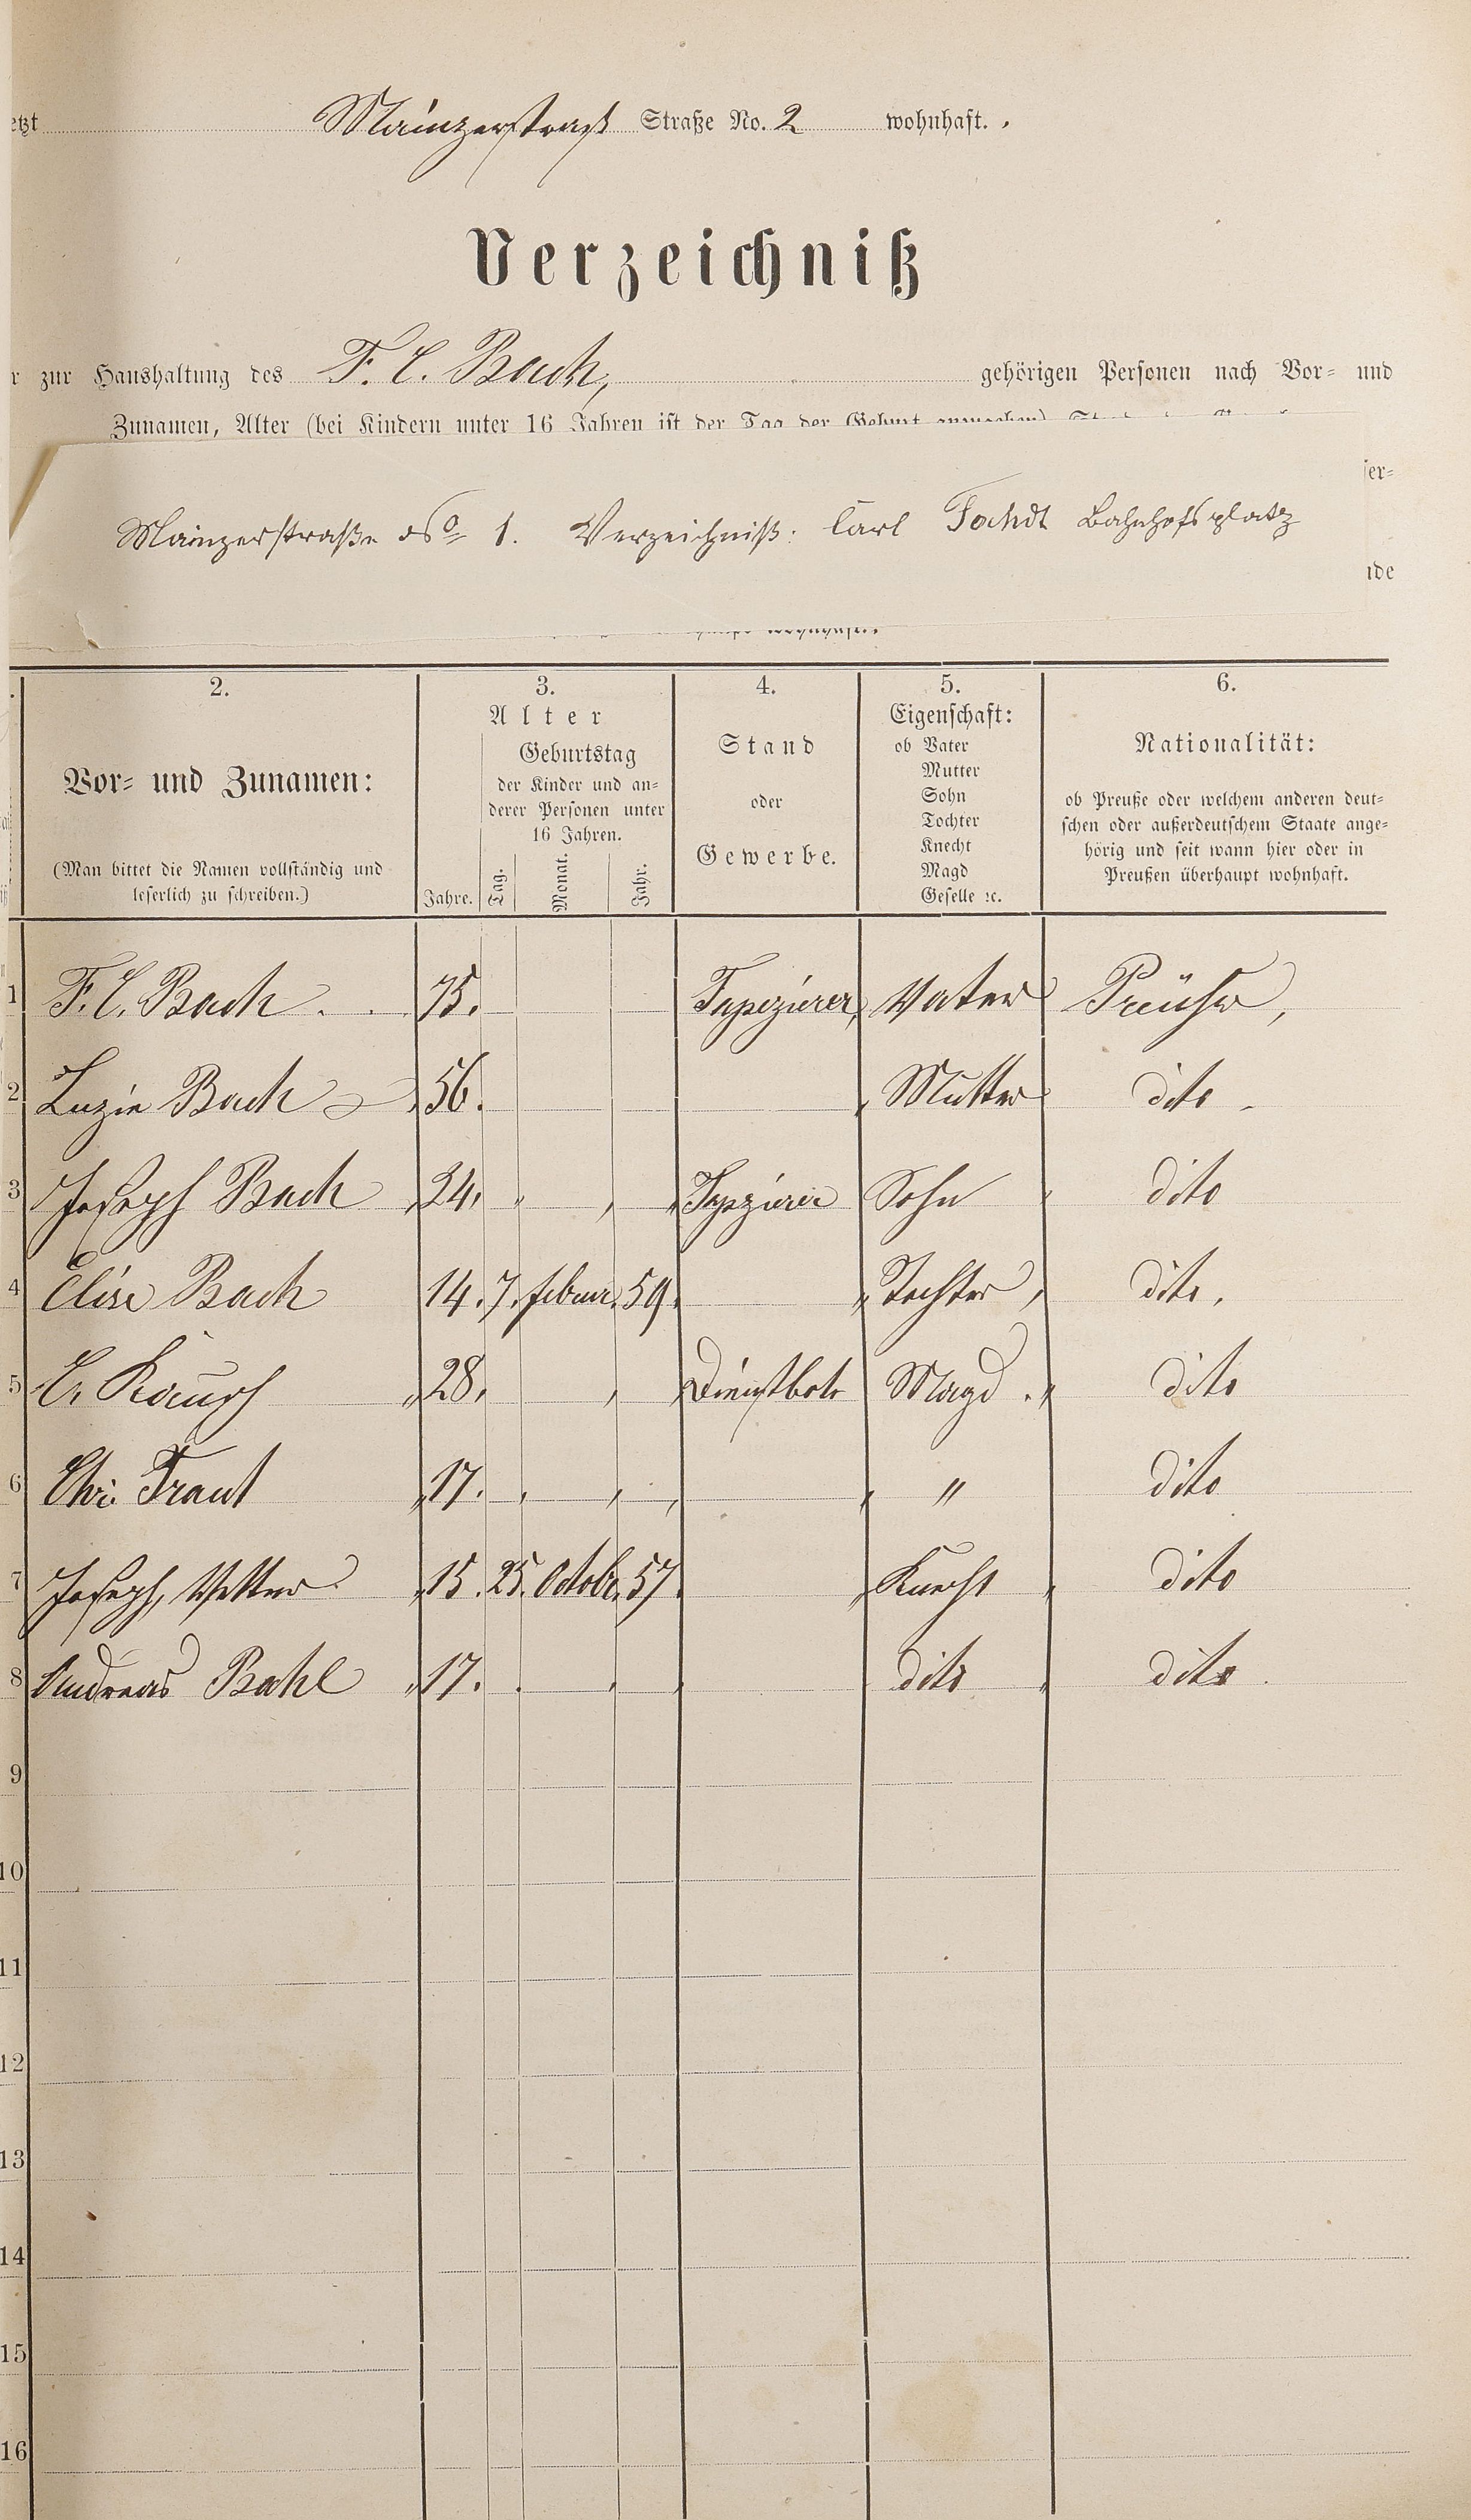 etzt Mainzerstraße Straße No. 2 wohnhaft.
Verzeichniß
r zur Haushaltung des F. C. Bach, gehörigen Personen nach Vor- und
Zunamen, Alter (bei Kindern unter 16 Jahren ist der Tag der Geburt anzugeben)
ser-
Mainzerstraße No 1. Verzeichniß: Carl Bahnhofsplatz
nde
2. 3. 4. 5. 6.
Vor- und Zunamen:
(Man bittet die Namen vollständig und
leserlich zu schreiben.)
Alter
Geburtstag
der Kinder und an-
derer Personen unter
16 Jahren.
Jahre. Tag. Monat. Jahr.
Stand
oder
Gewerbe.
Eigenschaft:
ob Vater
Mutter
Sohn
Tochter
Knecht
Magd
Geselle ꝛc.
Nationalität:
ob Preuße oder welchem anderen deut-
schen oder außerdeutschem Staate ange-
hörig und seit wann hier oder in
Preußen überhaupt wohnhaft.
1 F. C. Bach. 75. Tapezierer, Vater Preuße,
2 Luzie Bach 56. Mutter dito
3 Joseph Bach 24. Tapzierer Sohn dito
4 Elise Bach 14. 7. Februar. 59. Tochter, dito.
5 C. 28. Dienstbote Magd. dito
6 Chr. Traut 17. " dito
7 Joseph, Vetter 15. 25. Octobr. 57. Knecht dito
8 Andreas Bahl 17. dito dito.
9
10
11
12
13
14
15
16